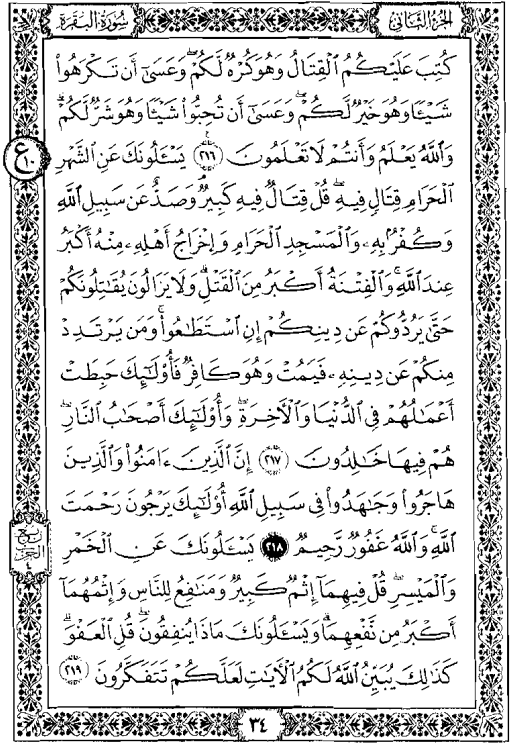 الجزء الثاني
سورة البقرة
كُتِبَ عَلَيْكُمُ ٱلْقِتَالُ وَهُوَ كُرْهٌ لَّكُمْ ۖ وَعَسَىٰٓ أَن تَكْرَهُوا۟
شَيْـًٔا وَهُوَ خَيْرٌ لَّكُمْ ۖ وَعَسَىٰٓ أَن تُحِبُّوا۟ شَيْـًٔا وَهُوَ شَرٌّ لَّكُمْ ۗ
وَٱللَّهُ يَعْلَمُ وَأَنتُمْ لَا تَعْلَمُونَ ٢١٦ يَسْـَٔلُونَكَ عَنِ ٱلشَّهْرِ
ٱلْحَرَامِ قِتَالٍ فِيهِ ۖ قُلْ قِتَالٌ فِيهِ كَبِيرٌ ۖ وَصَدٌّ عَن سَبِيلِ ٱللَّهِ
وَكُفْرٌۢ بِهِۦ وَٱلْمَسْجِدِ ٱلْحَرَامِ وَإِخْرَاجُ أَهْلِهِۦ مِنْهُ أَكْبَرُ
عِندَ ٱللَّهِ ۚ وَٱلْفِتْنَةُ أَكْبَرُ مِنَ ٱلْقَتْلِ ۗ وَلَا يَزَالُونَ يُقَـٰتِلُونَكُمْ
حَتَّىٰ يَرُدُّوكُمْ عَن دِينِكُمْ إِنِ ٱسْتَطَـٰعُوا۟ ۚ وَمَن يَرْتَدِدْ
مِنكُمْ عَن دِينِهِۦ فَيَمُتْ وَهُوَ كَافِرٌ فَأُو۟لَـٰٓئِكَ حَبِطَتْ
أَعْمَـٰلُهُمْ فِى ٱلدُّنْيَا وَٱلْـَٔاخِرَةِ ۖ وَأُو۟لَـٰٓئِكَ أَصْحَـٰبُ ٱلنَّارِ ۖ
هُمْ فِيهَا خَـٰلِدُونَ ٢١٧ إِنَّ ٱلَّذِينَ ءَامَنُوا۟ وَٱلَّذِينَ
هَاجَرُوا۟ وَجَـٰهَدُوا۟ فِى سَبِيلِ ٱللَّهِ أُو۟لَـٰٓئِكَ يَرْجُونَ رَحْمَتَ
ٱللَّهِ ۚ وَٱللَّهُ غَفُورٌ رَّحِيمٌ ٢١٨ يَسْـَٔلُونَكَ عَنِ ٱلْخَمْرِ
وَٱلْمَيْسِرِ ۖ قُلْ فِيهِمَآ إِثْمٌ كَبِيرٌ وَمَنَـٰفِعُ لِلنَّاسِ وَإِثْمُهُمَآ
أَكْبَرُ مِن نَّفْعِهِمَا ۗ وَيَسْـَٔلُونَكَ مَاذَا يُنفِقُونَ قُلِ ٱلْعَفْوَ ۗ
كَذَٰلِكَ يُبَيِّنُ ٱللَّهُ لَكُمُ ٱلْـَٔايَـٰتِ لَعَلَّكُمْ تَتَفَكَّرُونَ ٢١٩
ع ١٠
ربع
الحزب
٤
٣٤